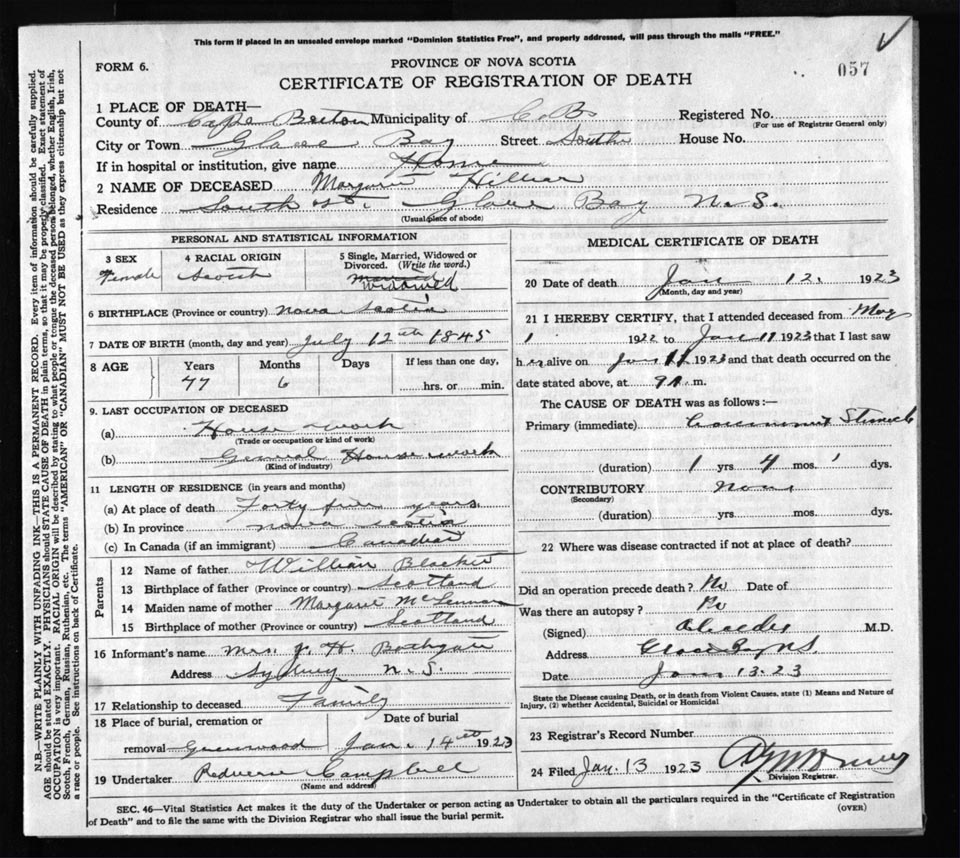 This form if placed in an unsealed envelope marked "Dominion Statistics Free", and properly addressed, will pass through the mails "FREE."
FORM 6.
PROVINCE OF NOVA SCOTIA
057
CERTIFICATE OF REGISTRATION OF DEATH
1 PLACE OF DEATH—
County of Cape Breton Municipality of C. B. Registered No.
(For use of Registrar General only)
City or Town Glace Bay Street South House No.
If in hospital or institution, give name Home
2 NAME OF DECEASED Margaret Hillier
Residence South St. Glace Bay N. S.
(Usual place of abode)
PERSONAL AND STATISTICAL INFORMATION
3 SEX
Female
4 RACIAL ORIGIN
Scotch
5 Single, Married, Widowed or Divorced. (Write the word.)
Married
Widowed
6 BIRTHPLACE (Province or country) Nova Scotia
7 DATE OF BIRTH (month, day and year) July 12th 1845
8 AGE Years Months Days If less than one day,
77 6 hrs. or min.
9. LAST OCCUPATION OF DECEASED
(a) House work
(Trade or occupation or kind of work)
(b) General House work
(Kind of industry)
11 LENGTH OF RESIDENCE (in years and months)
(a) At place of death Forty five years
(b) In province Nova Scotia
(c) In Canada (if an immigrant) Canadian
Parents
12 Name of father William
13 Birthplace of father (Province or country) Scotland
14 Maiden name of mother Margaret
15 Birthplace of mother (Province or country) Scotland
16 Informant's name Mrs. J. H.
Address Sydney N. S.
17 Relationship to deceased Family
18 Place of burial, cremation or removal Greenwood
Date of burial Jan. 14th 1923
19 Undertaker Redvers Campbell
(Name and address)
MEDICAL CERTIFICATE OF DEATH
20 Date of death Jan 12. 1923
(Month, day and year)
21 I HEREBY CERTIFY, that I attended deceased from May
1 1922 to Jan 11 1923 that I last saw
her alive on Jan 11 1923 and that death occurred on
date stated above, at 9 A. m.
The CAUSE OF DEATH was as follows:—
Primary (immediate) Stomach
(duration) 1 yrs 4 mos. 1 dys.
CONTRIBUTORY None
(Secondary)
(duration) yrs. mos. dys.
22 Where was disease contracted if not at place of death?
Did an operation precede death? No Date of
Was there an autopsy? No
(Signed) M.D.
Address Glace Bay N S
Date Jan 13. 23
State the Disease causing Death, or in death from Violent Causes, state (1) Means and Nature of
Injury, (2) whether Accidental, Suicidal or Homicidal
23 Registrar's Record Number
24 Filed Jan. 13 1923
Division Registrar.
SEC. 46—Vital Statistics Act makes it the duty of the Undertaker or person acting as Undertaker to obtain all the particulars required in the "Certificate of Registration
of Death" and to file the same with the Division Registrar who shall issue the burial permit.
(OVER)
N.B.—WRITE PLAINLY WITH UNFADING INK—THIS IS A PERMANENT RECORD. Every item of information should be carefully supplied.
AGE should be stated EXACTLY. PHYSICIANS should STATE CAUSE OF DEATH in plain terms, so that it may be properly classified. Exact statement of
OCCUPATION is very important. RACIAL ORIGIN will be described by stating to what people or tongue the deceased person belonged, whether English, Irish,
Scotch, French, German, Russian, Ruthenian, etc. The terms "AMERICAN" or "CANADIAN" MUST NOT BE USED as they express citizenship but not
a race or people. See instructions on back of Certificate.